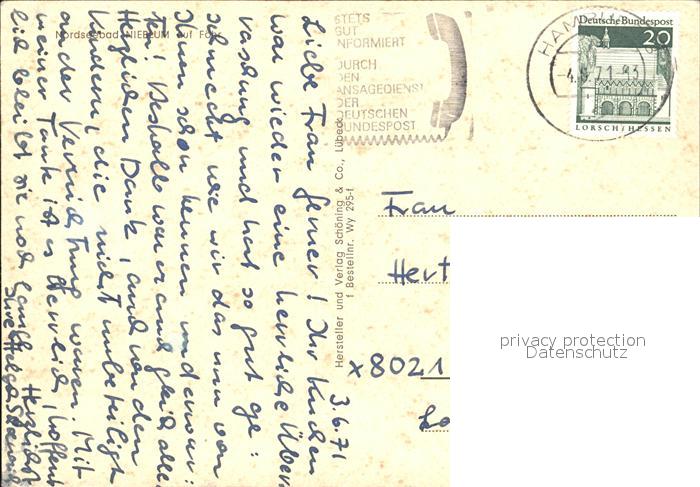 Nordseebad NIEBLUM auf Föhr
STETS
GUT
INFORMIERT
DURCH
DEN
ANSAGEDIENST
DER
DEUTSCHEN
BUNDESPOST
HAMBURG
-4.6.71-
Deutsche Bundespost
20
LORSCH/HESSEN
Hersteller und Verlag Schöning & Co., Lübeck
1 Bestellnr. Wy 295-f
3.6.71
Liebe Frau! Ihr Kuchen
war wieder eine herrliche Über-
raschung und hat so gut ge-
schmeckt wie wir das nun von
Ihnen schon kennen und erwar-
ten! Deshalb war er auch gleich alle!
Herzlichen Dank, auch von den
Kindern, die nicht unbeteiligt
an der Vernichtung waren. Mit
meiner Tante ist es
bleibt sie noch
Herzlichst
Frau
Hert
x8021
privacy protection
Datenschutz